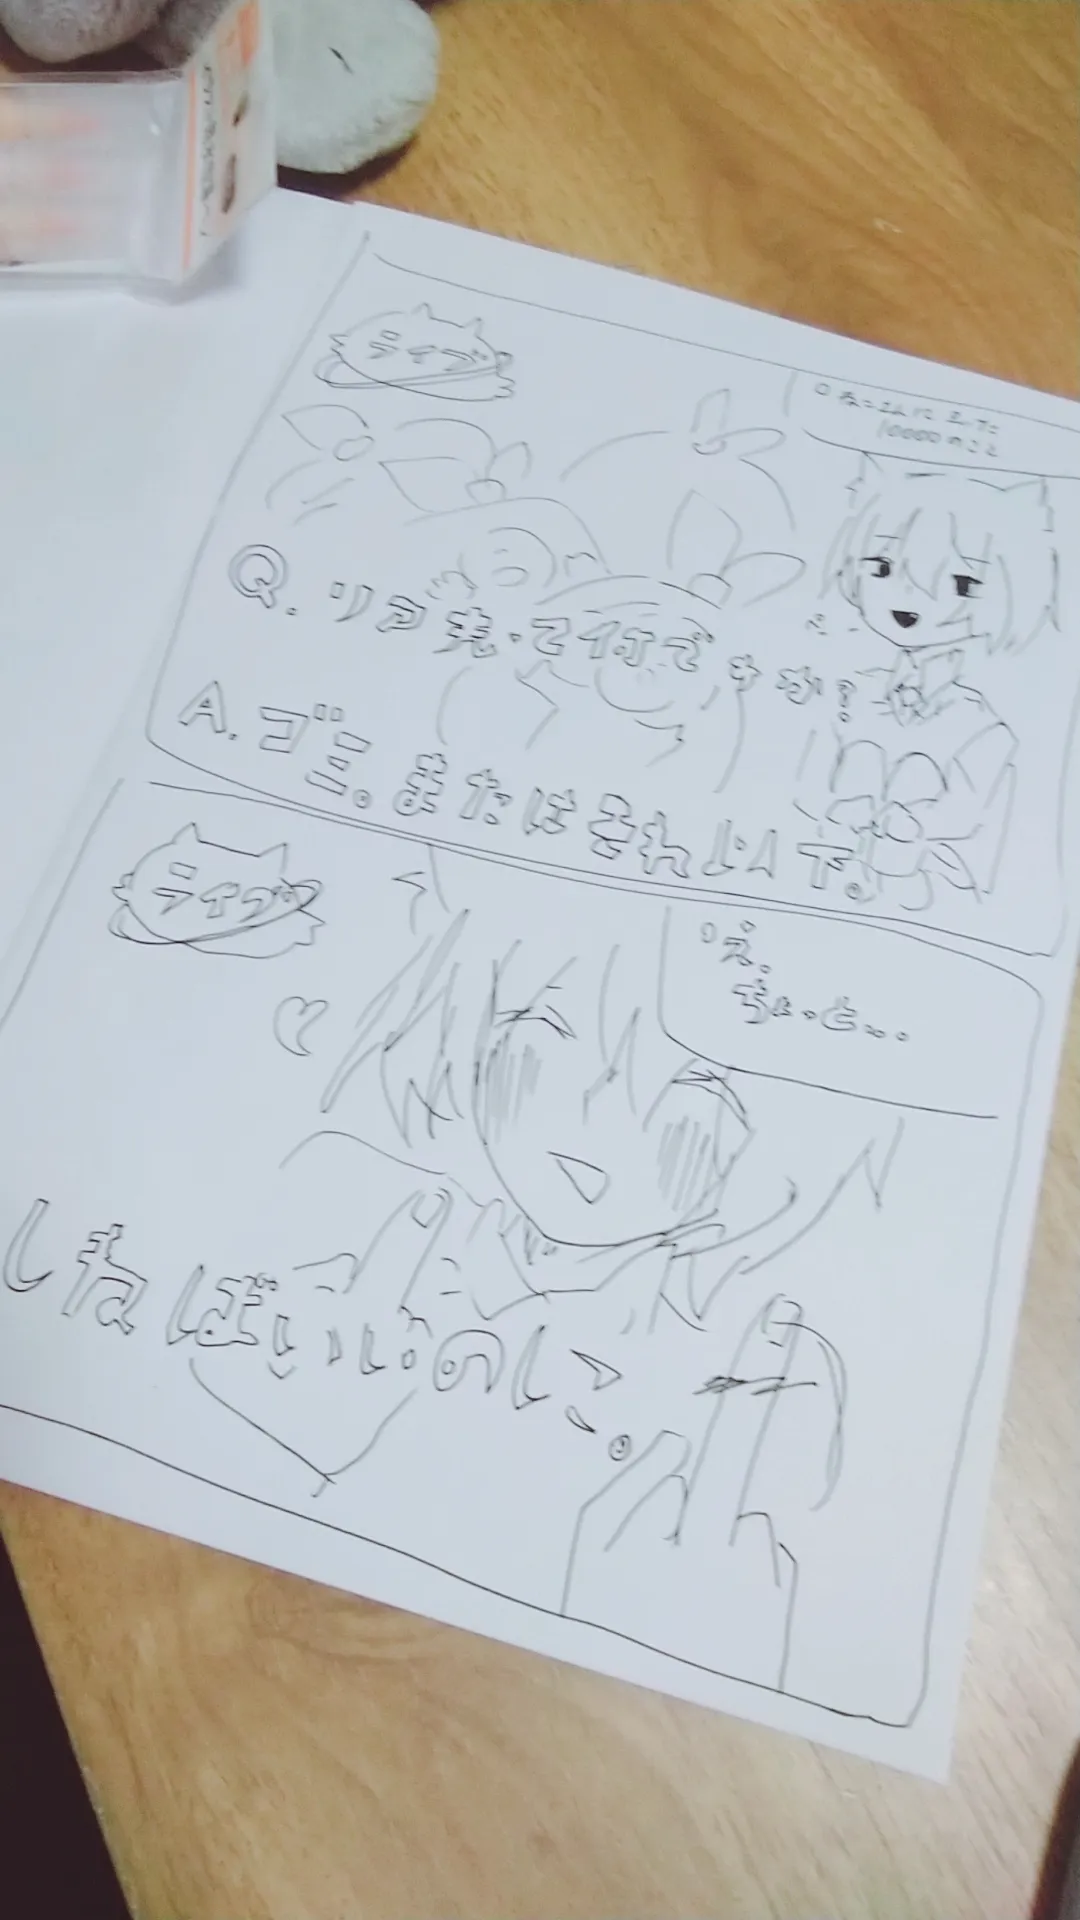 ライブ
ねこさんにまつた
10000のこと
Q. リコ先って何ですか?
A. ゴミ。またはそれ以下。
ライブ
え。
ちょっと...
しねばいいのに。